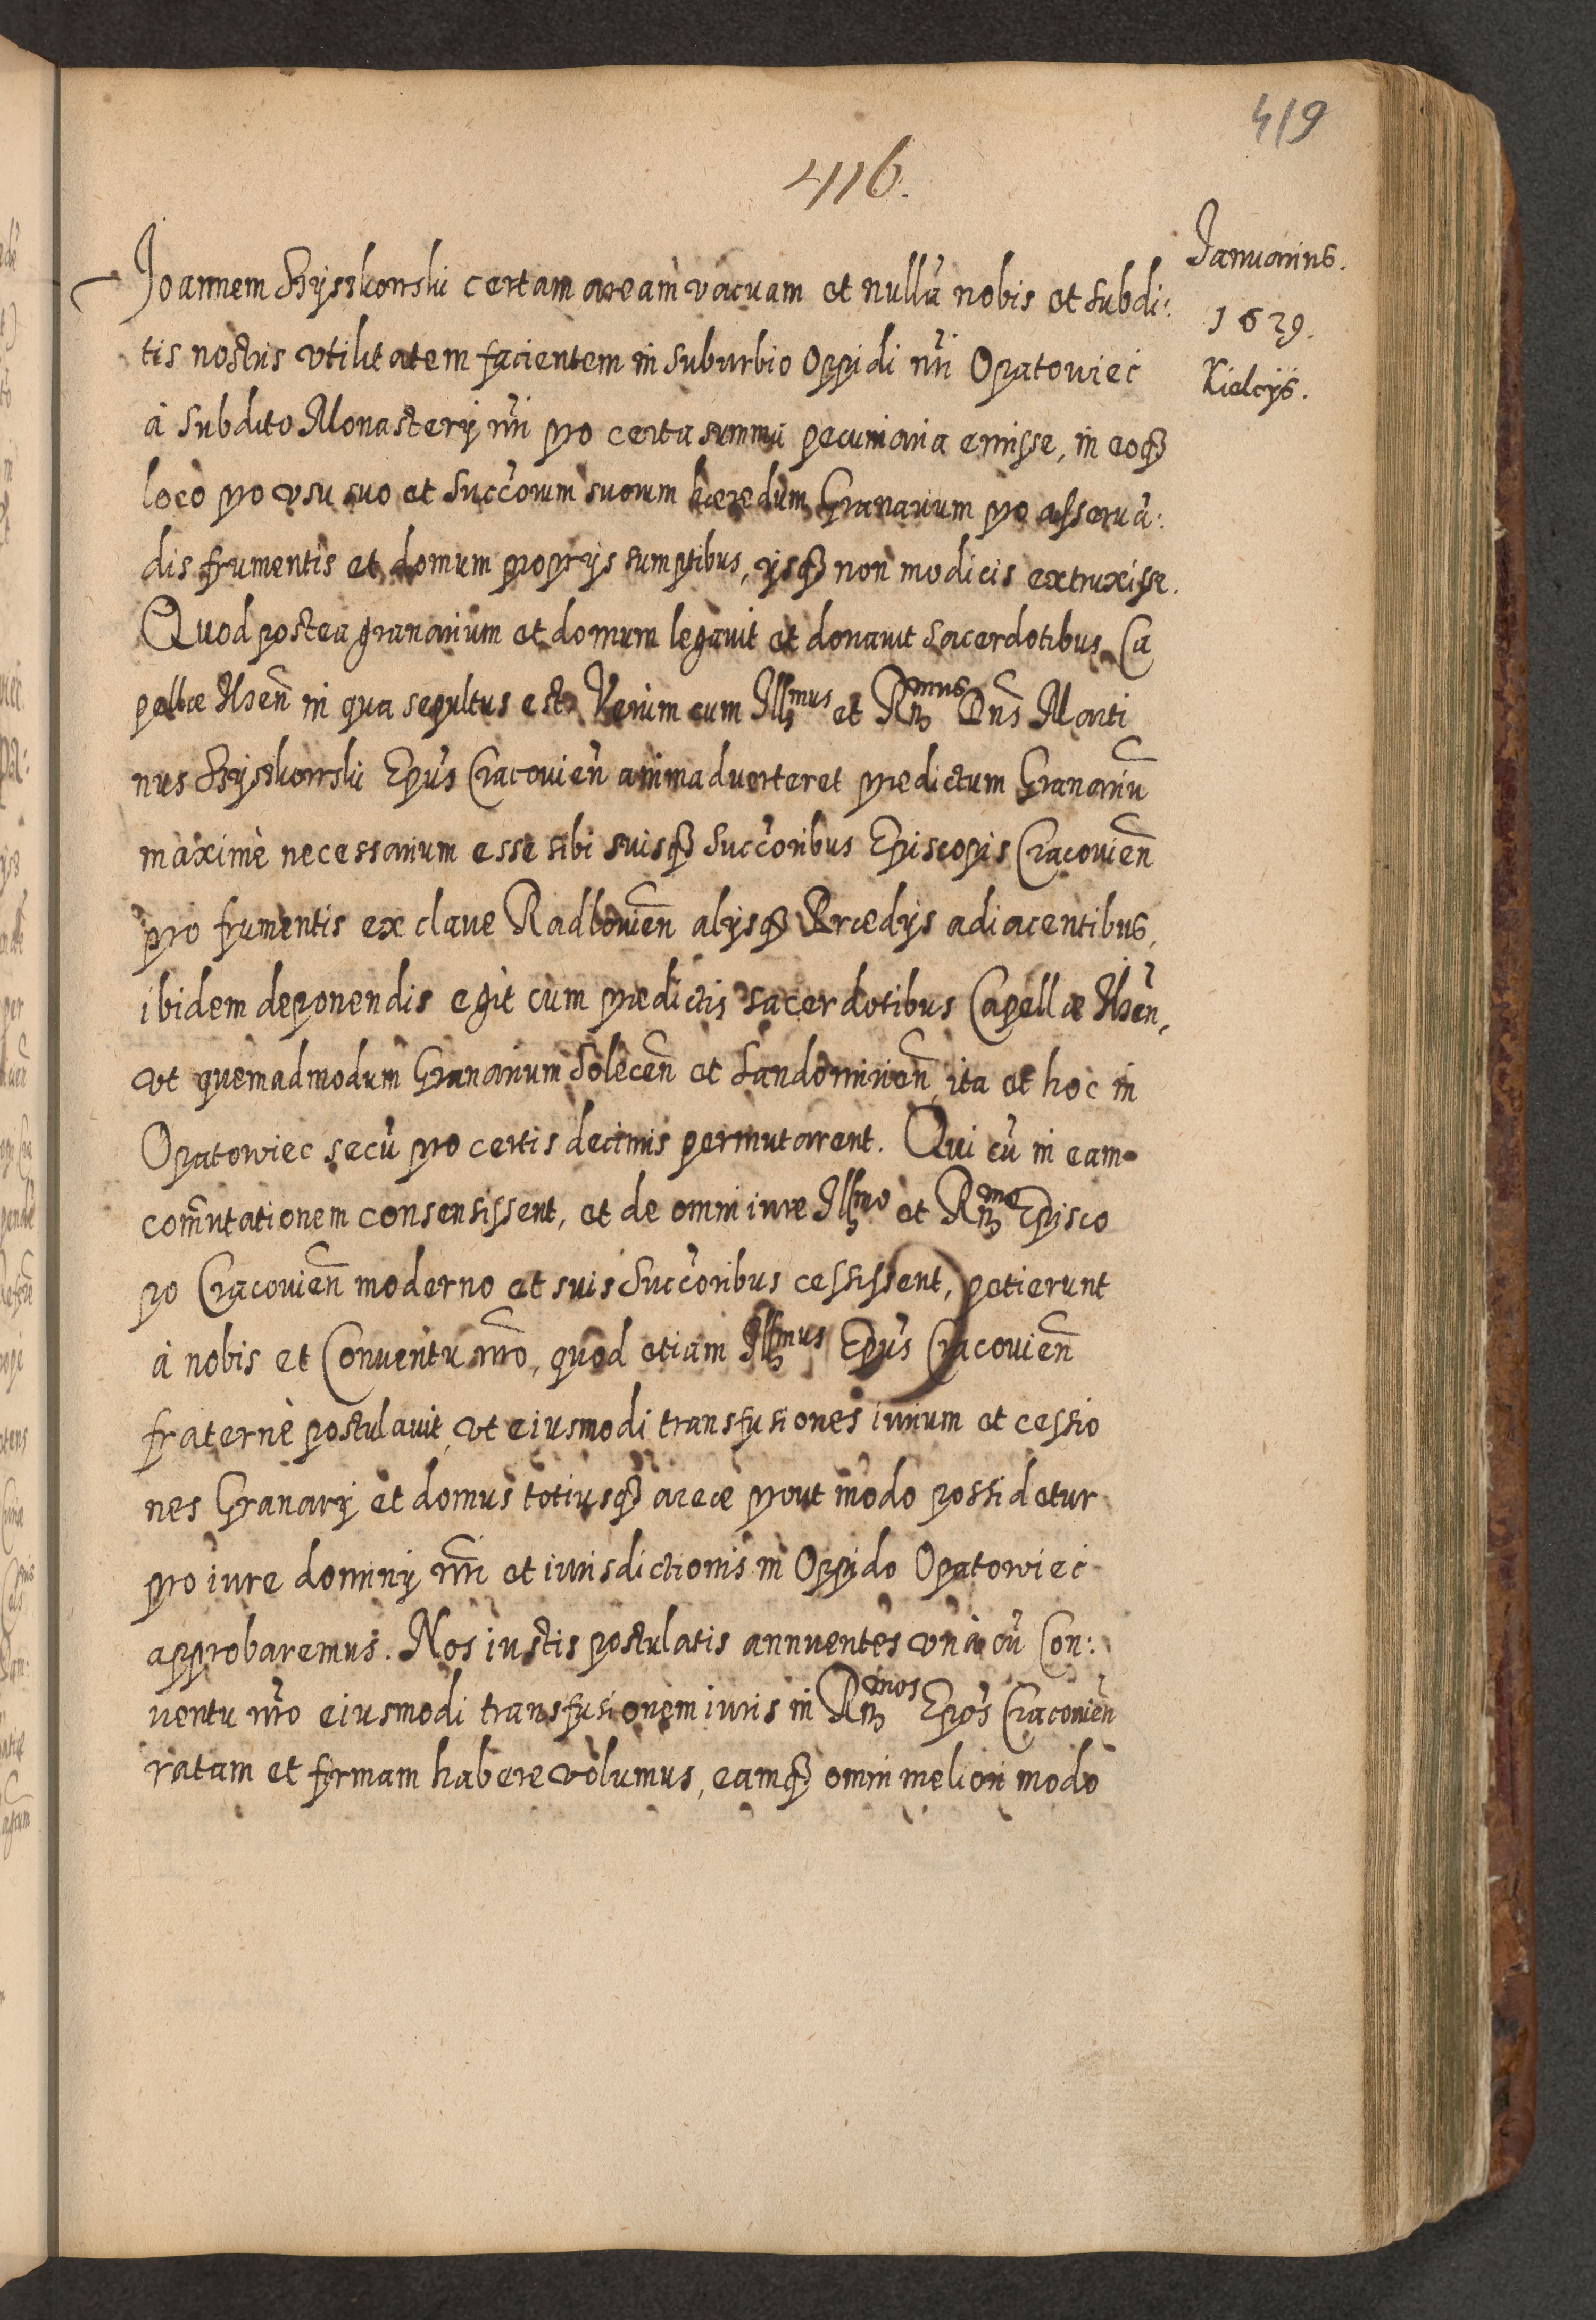 419
416.
Januarius.
1629.
Kielcijs.
Joannem Szyszkowski certam aream vacuam et nullā nobis et subdi:
tis nostris vtilitatem facientem in suburbio Oppidi nři Opatowiec
à subdito Monasterij nři pro certa summa pecuniaria emisse, in eoqȝ
loco pro vsu suo et succ̃orum suorum hæredum Granarium pro asseruā:
dis frumentis et domum proprijs sumptibus, ijsqȝ non modicis extruxisse.
Quod postea granarium et domum legauit et donauit sacerdotibus Ca
pellæ in qua sepultus est. Verùm cum Illmus et Rmus Dn̄s Marti
nus Szyszkowski Ep̃us Cracouień animaduerteret prædictum Granariū
maximè necessarium esse sibi suisqȝ succ̃oribus Episcopis Cracouień
pro frumentis ex claue Radłouień alijsqȝ Prædijs adiacentibus,
ibidem deponendis egit cum prædictis sacerdotibus Capellæ
vt quemadmodum Granarium Soleceń et Sandomirień, ita et hoc in
Opatowiec secū pro certis decimis permutarent. Qui cū in eam
com̃utationem consensissent, et de omni iure Illmo et Rmo Episco
po Cracouień moderno et suis succ̃oribus cessissent, petierunt
à nobis et Conuentu nřo, quod etiam Illmus Ep̃us Cracouień
fraternè postulauit, vt eiusmodi transfusiones iurium et cessio
nes Granarij et domus totiusqȝ areæ prout modo possidetur
pro iure dominij nři et iurisdictionis in Oppido Opatowiec
approbaremus. Nos iustis postulatis annuentes vnà cū Con:
uentu nřo eiusmodi transfusionem iuris in Rmos Ep̃os Cracouień
ratam et firmam habere volumus, eamqȝ omni meliori modo